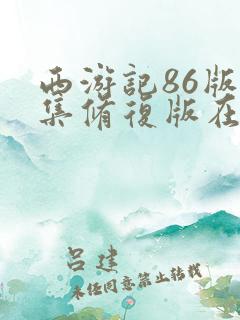 西游記86版
集修復版在
吕建
未经同意禁止转载